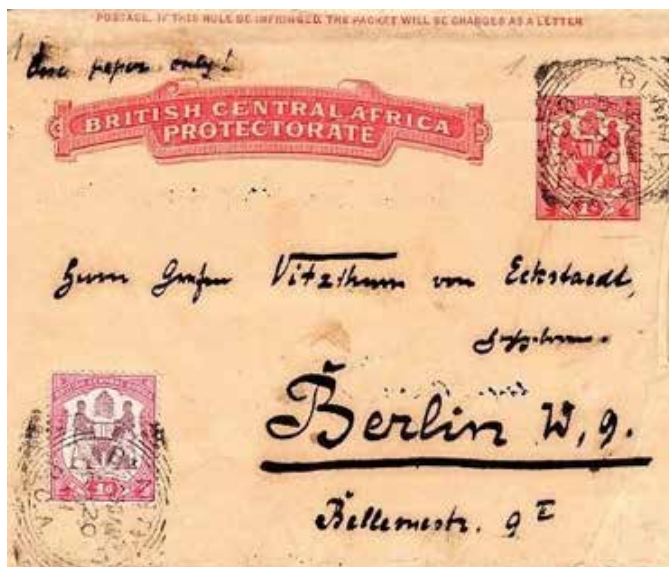 POSTAGE. IF THIS RULE BE INFRINGED, THE PACKET WILL BE CHARGED AS A LETTER
One paper only!
BRITISH CENTRAL AFRICA
PROTECTORATE
Herrn Grafen Vitzthum von Eckstaedt,
Berlin W, 9.
Bellevuestr. 9 II